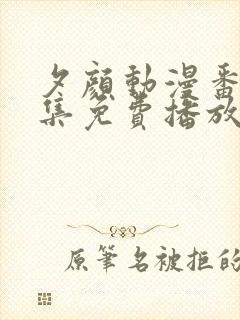 夕顔動漫番
集免費播放
原筆名被拒的